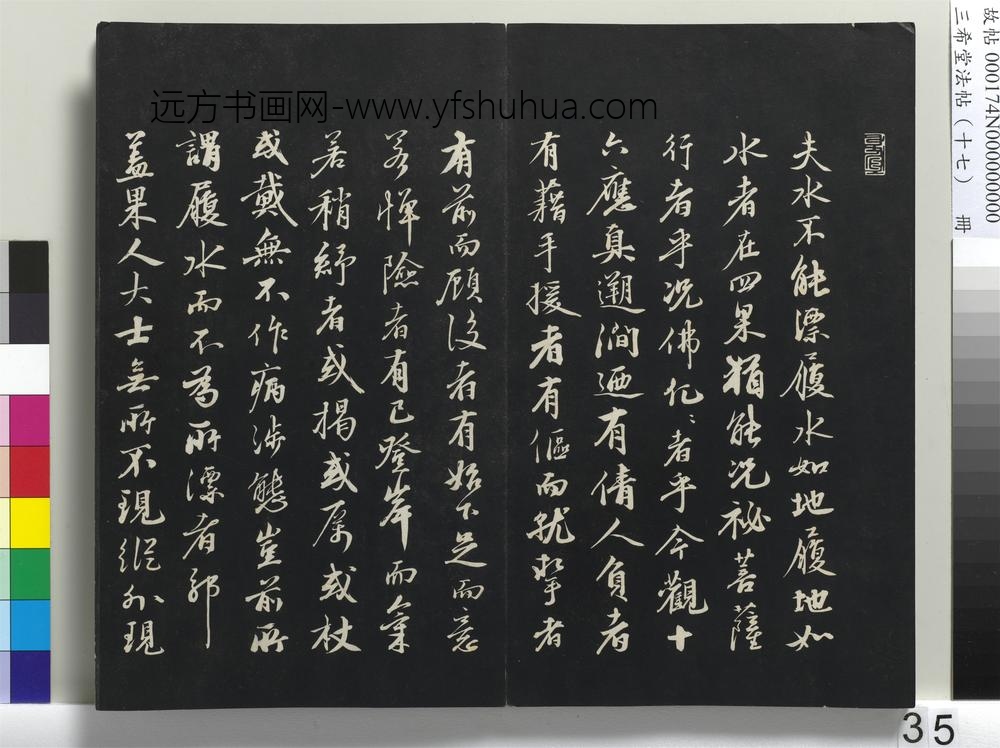 夫水不能漂履水如地履地如
水者在四果猶能况祕菩薩
行者乎况佛化〻者乎今觀十
六應真遡澗迺有倩人負者
有藉手援者有傴而就掔者
有前而顧後者有始下足而意
若憚險者有已登岸而氣
若稍紓者或揭或厲或杖
或戴無不作病涉態豈前所
謂履水而不為所漂者耶
蓋果人大士無所不現縱外現
远方书画网-www.yfshuhua.com
故帖 000174N000000000
三希堂法帖（十七） 冊
35